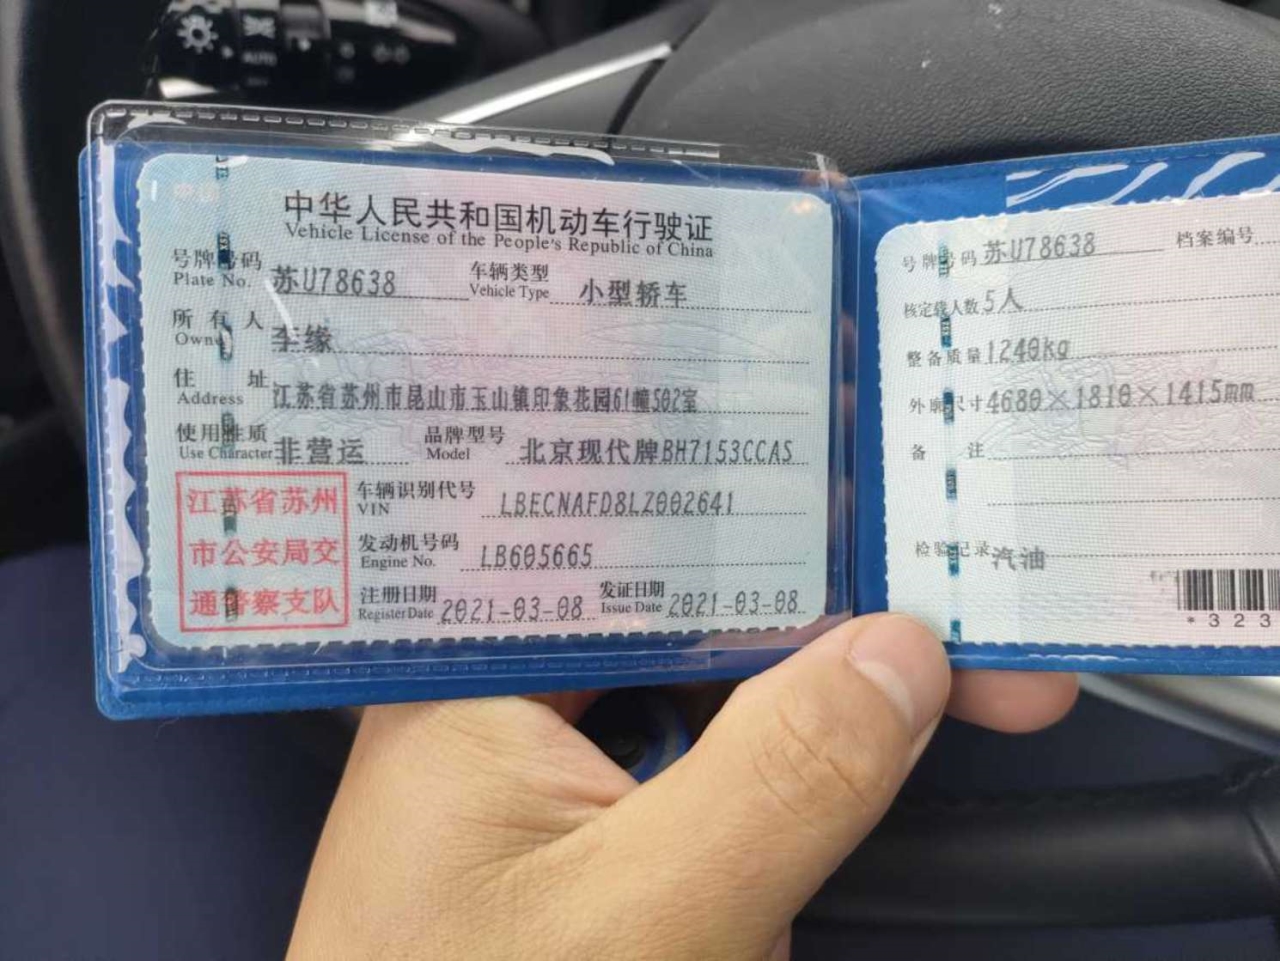 AUTO
中华人民共和国机动车行驶证
Vehicle License of the People's Republic of China
号牌号码 Plate No. 苏U78638 车辆类型 Vehicle Type 小型轿车
所有人 Owner 车缘
住址 Address 江苏省苏州市昆山市玉山镇印象花园61幢502室
使用性质 Use Character 非营运 品牌型号 Model 北京现代牌BH7153CCAS
江苏省苏州
市公安局交
通警察支队
车辆识别代号 VIN LBECNAFD8LZ002641
发动机号码 Engine No. LB605665
注册日期 Register Date 2021-03-08 发证日期 Issue Date 2021-03-08
号牌号码 苏U78638 档案编号
核定载人数 5人
整备质量 1240kg
外廓尺寸 4680×1810×1415mm
备注
检验记录 汽油
*323